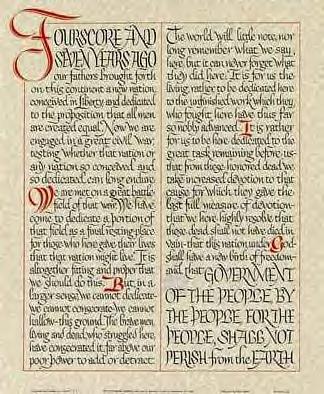 FOURSCORE AND
SEVEN YEARS AGO
our fathers brought forth
on this continent a new nation,
conceived in liberty and dedicated
to the proposition that all men
are created equal. Now we are
engaged in a great civil war,
testing whether that nation or
any nation so conceived and
so dedicated, can long endure.
We are met on a great battle-
field of that war. We have
come to dedicate a portion of
that field as a final resting-place
for those who here gave their lives
that that nation might live. It is
altogether fitting and proper that
we should do this. But in a
larger sense, we cannot dedicate-
we cannot consecrate-we cannot
hallow-this ground. The brave men,
living and dead, who struggled here,
have consecrated it, far above our
poor power to add or detract.
The world will little note, nor
long remember what we say
here, but it can never forget what
they did here. It is for us the
living, rather, to be dedicated here
to the unfinished work which they
who fought here have thus far
so nobly advanced. It is rather
for us to be here dedicated to the
great task remaining before us-
that from these honored dead we
take increased devotion to that
cause for which they gave the
last full measure of devotion-
that we here highly resolve that
these dead shall not have died in
vain-that this nation, under God-
shall have a new birth of freedom-
and that GOVERNMENT
OF THE PEOPLE, BY
THE PEOPLE, FOR THE
PEOPLE, SHALL NOT
PERISH from the EARTH